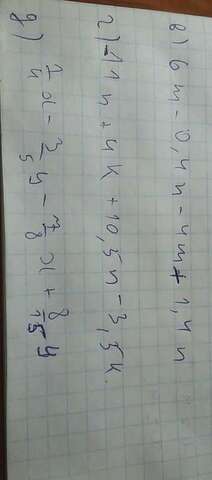 в) 6m-0,4n-4m+1,4n
г) -11n+4k+10,5n-3,5k
д) 1/4 x - 2/5 y - 7/8 x + 8/15 y